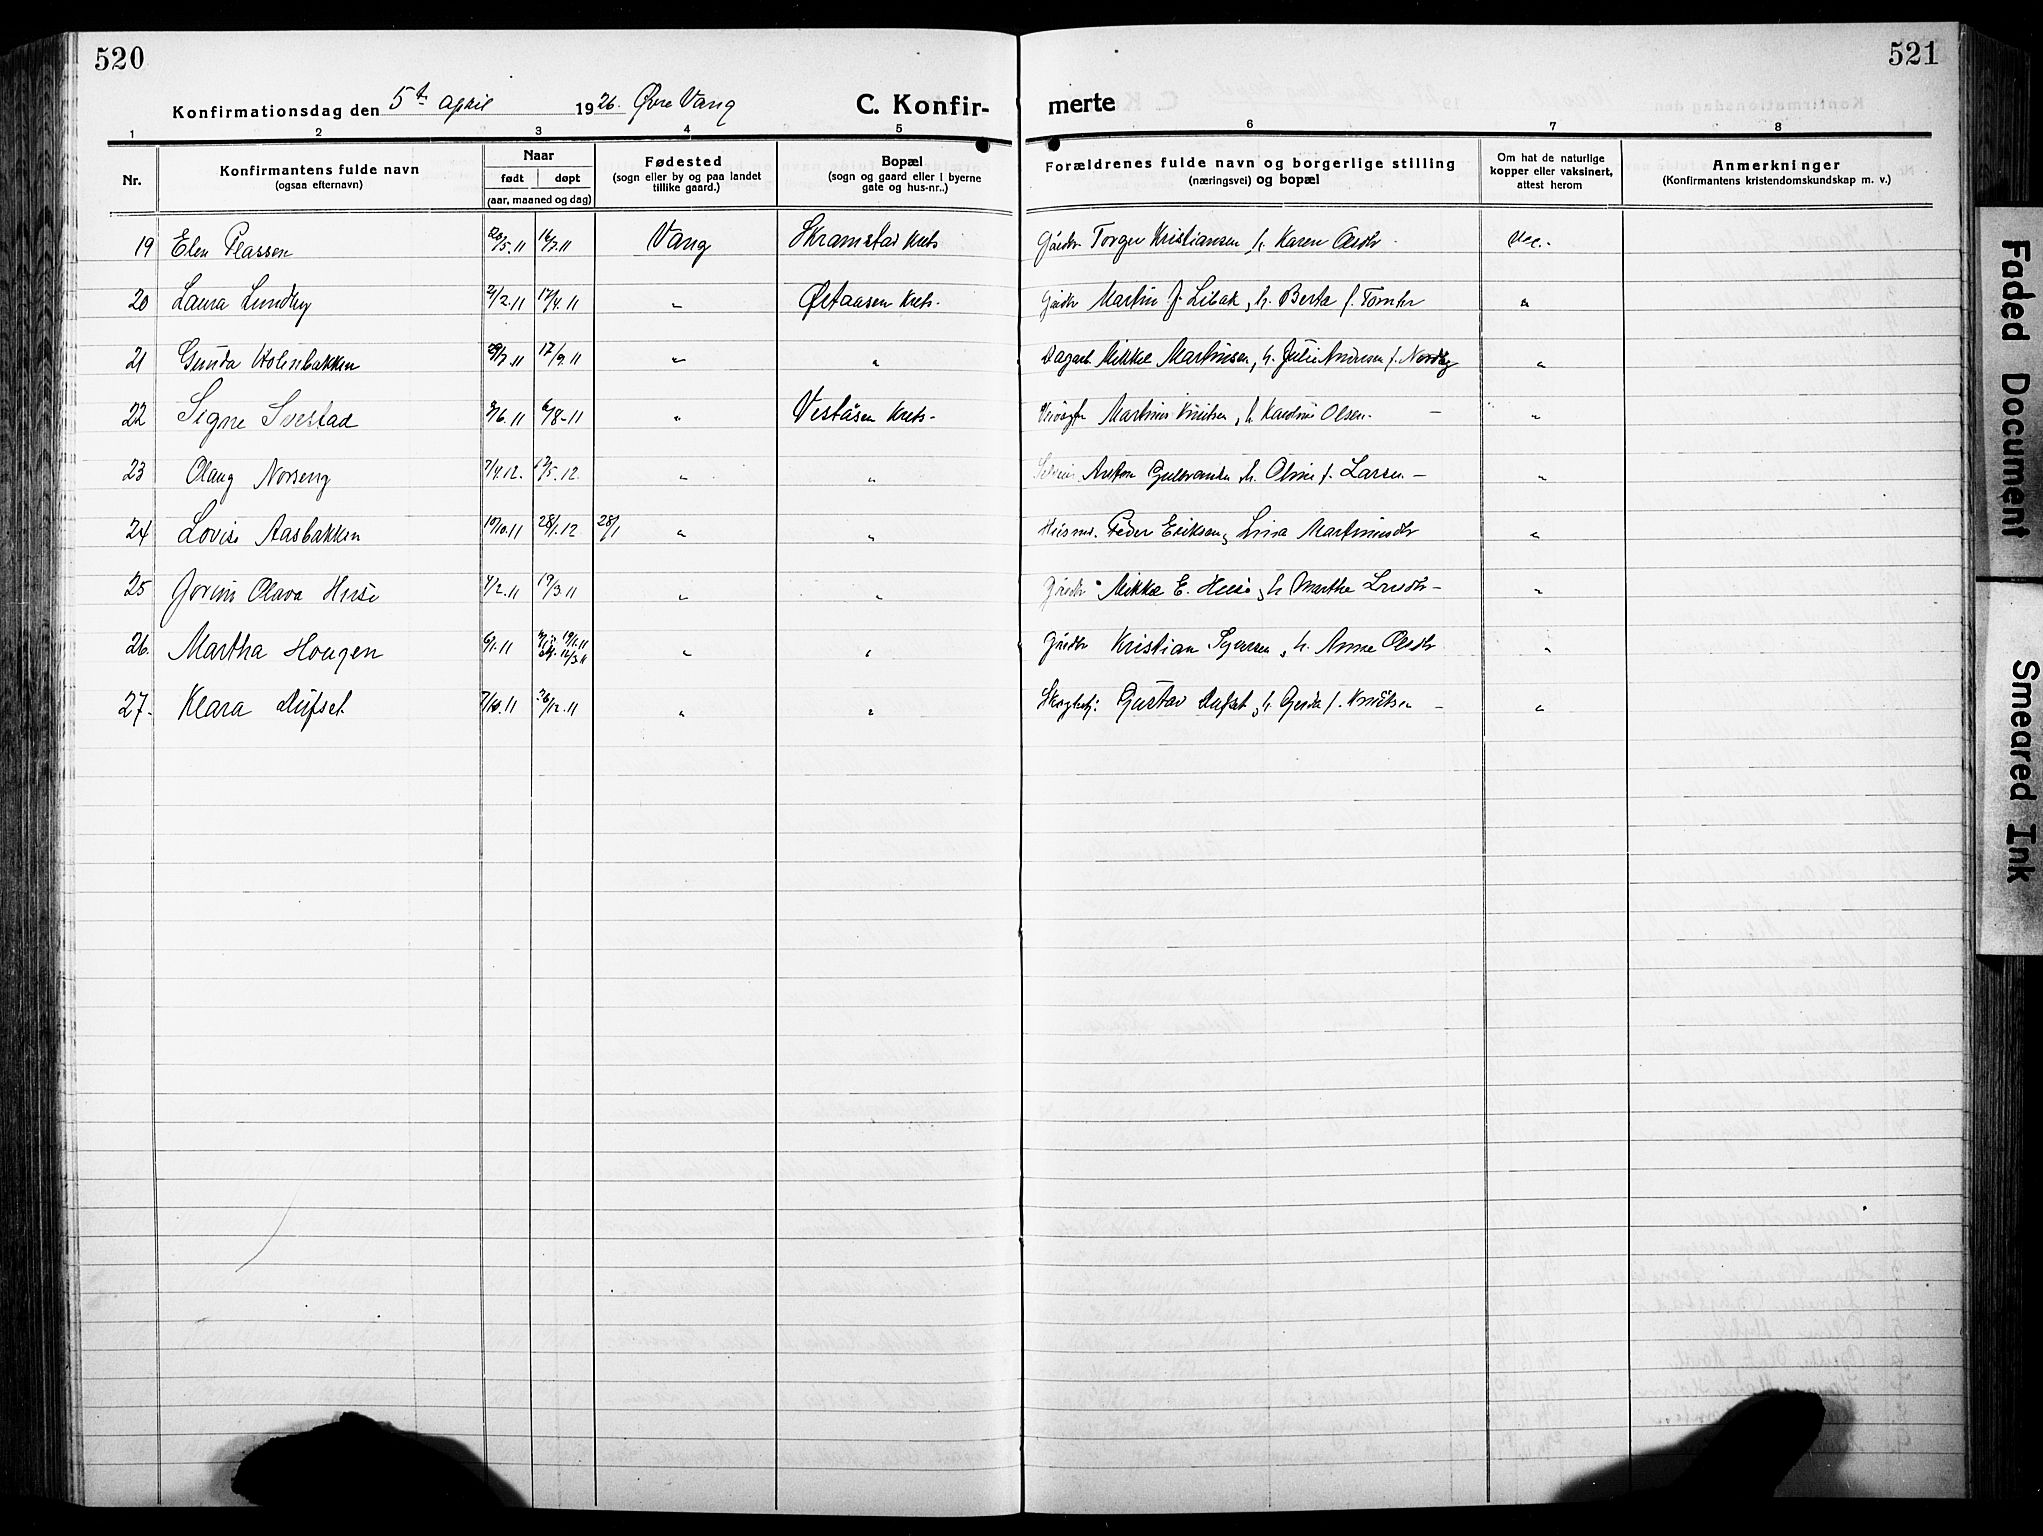 520
521
Konfirmationsdag den 5te april 1926. Øvre Vang
C. Konfir-
merte
1 2 3 4 5 6 7 8
Nr.
Konfirmantens fulde navn
(ogsaa efternavn)
Naar
født døpt
(aar, maaned og dag)
Fødested
(sogn eller by og paa landet
tillike gaard.)
Bopæl
(sogn og gaard eller i byerne
gate og hus-nr..)
Forældrenes fulde navn og borgerlige stilling
(næringsvei) og bopæl
Om hat de naturlige
kopper eller vaksinert,
attest herom
Anmerkninger
(Konfirmantens kristendomskundskap m. v.)
19 Elen Plassen 20/5.11 16/7.11 Vang Skramstad Kreds Gårdbr Torger Kristiansen, h. Karen Olsdtr. Vac.
20 Laura Lundby 2/2.11 17/4.11 " Østaasen Kreds. Gårdbr Martin J. Libak, h. Berta f. Tomter "
21 Gunda Holenbakken 29/7.11 17/9.11 " " Dagarb. Mikkel Martinsen, h. Julie Andresen f. Nordby "
22 Signe Svestad 9/6.11 6/8-11 " Veståsen Kreds. Martinius Knutsen, h. Karoline Olsen. - "
23 Olaug Norseng 7/4.12. 17/5.12. " " Anton Gulbrandsen h. Oline f. Larsen - "
24 Lovise Aasbakken 10/10.11 28/1.12 28/1 " " Husmd. Peder Eriksen, Lina Martinusdtr "
25 Jorun Olava Huse 4/2.11 19/3.11 " " Gårdbr Mikkel E. Huse, h Marthe Larsdtr - "
26. Martha Hougen 6/1.11 19/1.11 12/3.11 " " Gårdbr Kristian Syversen, h. Anne Olsdtr "
27. Klara Lufset 7/10.11 26/12.11 " " Skogbetj: Gustav Lufset, h Gerda f. Knudtsen - "
Faded Document
Smeared Ink